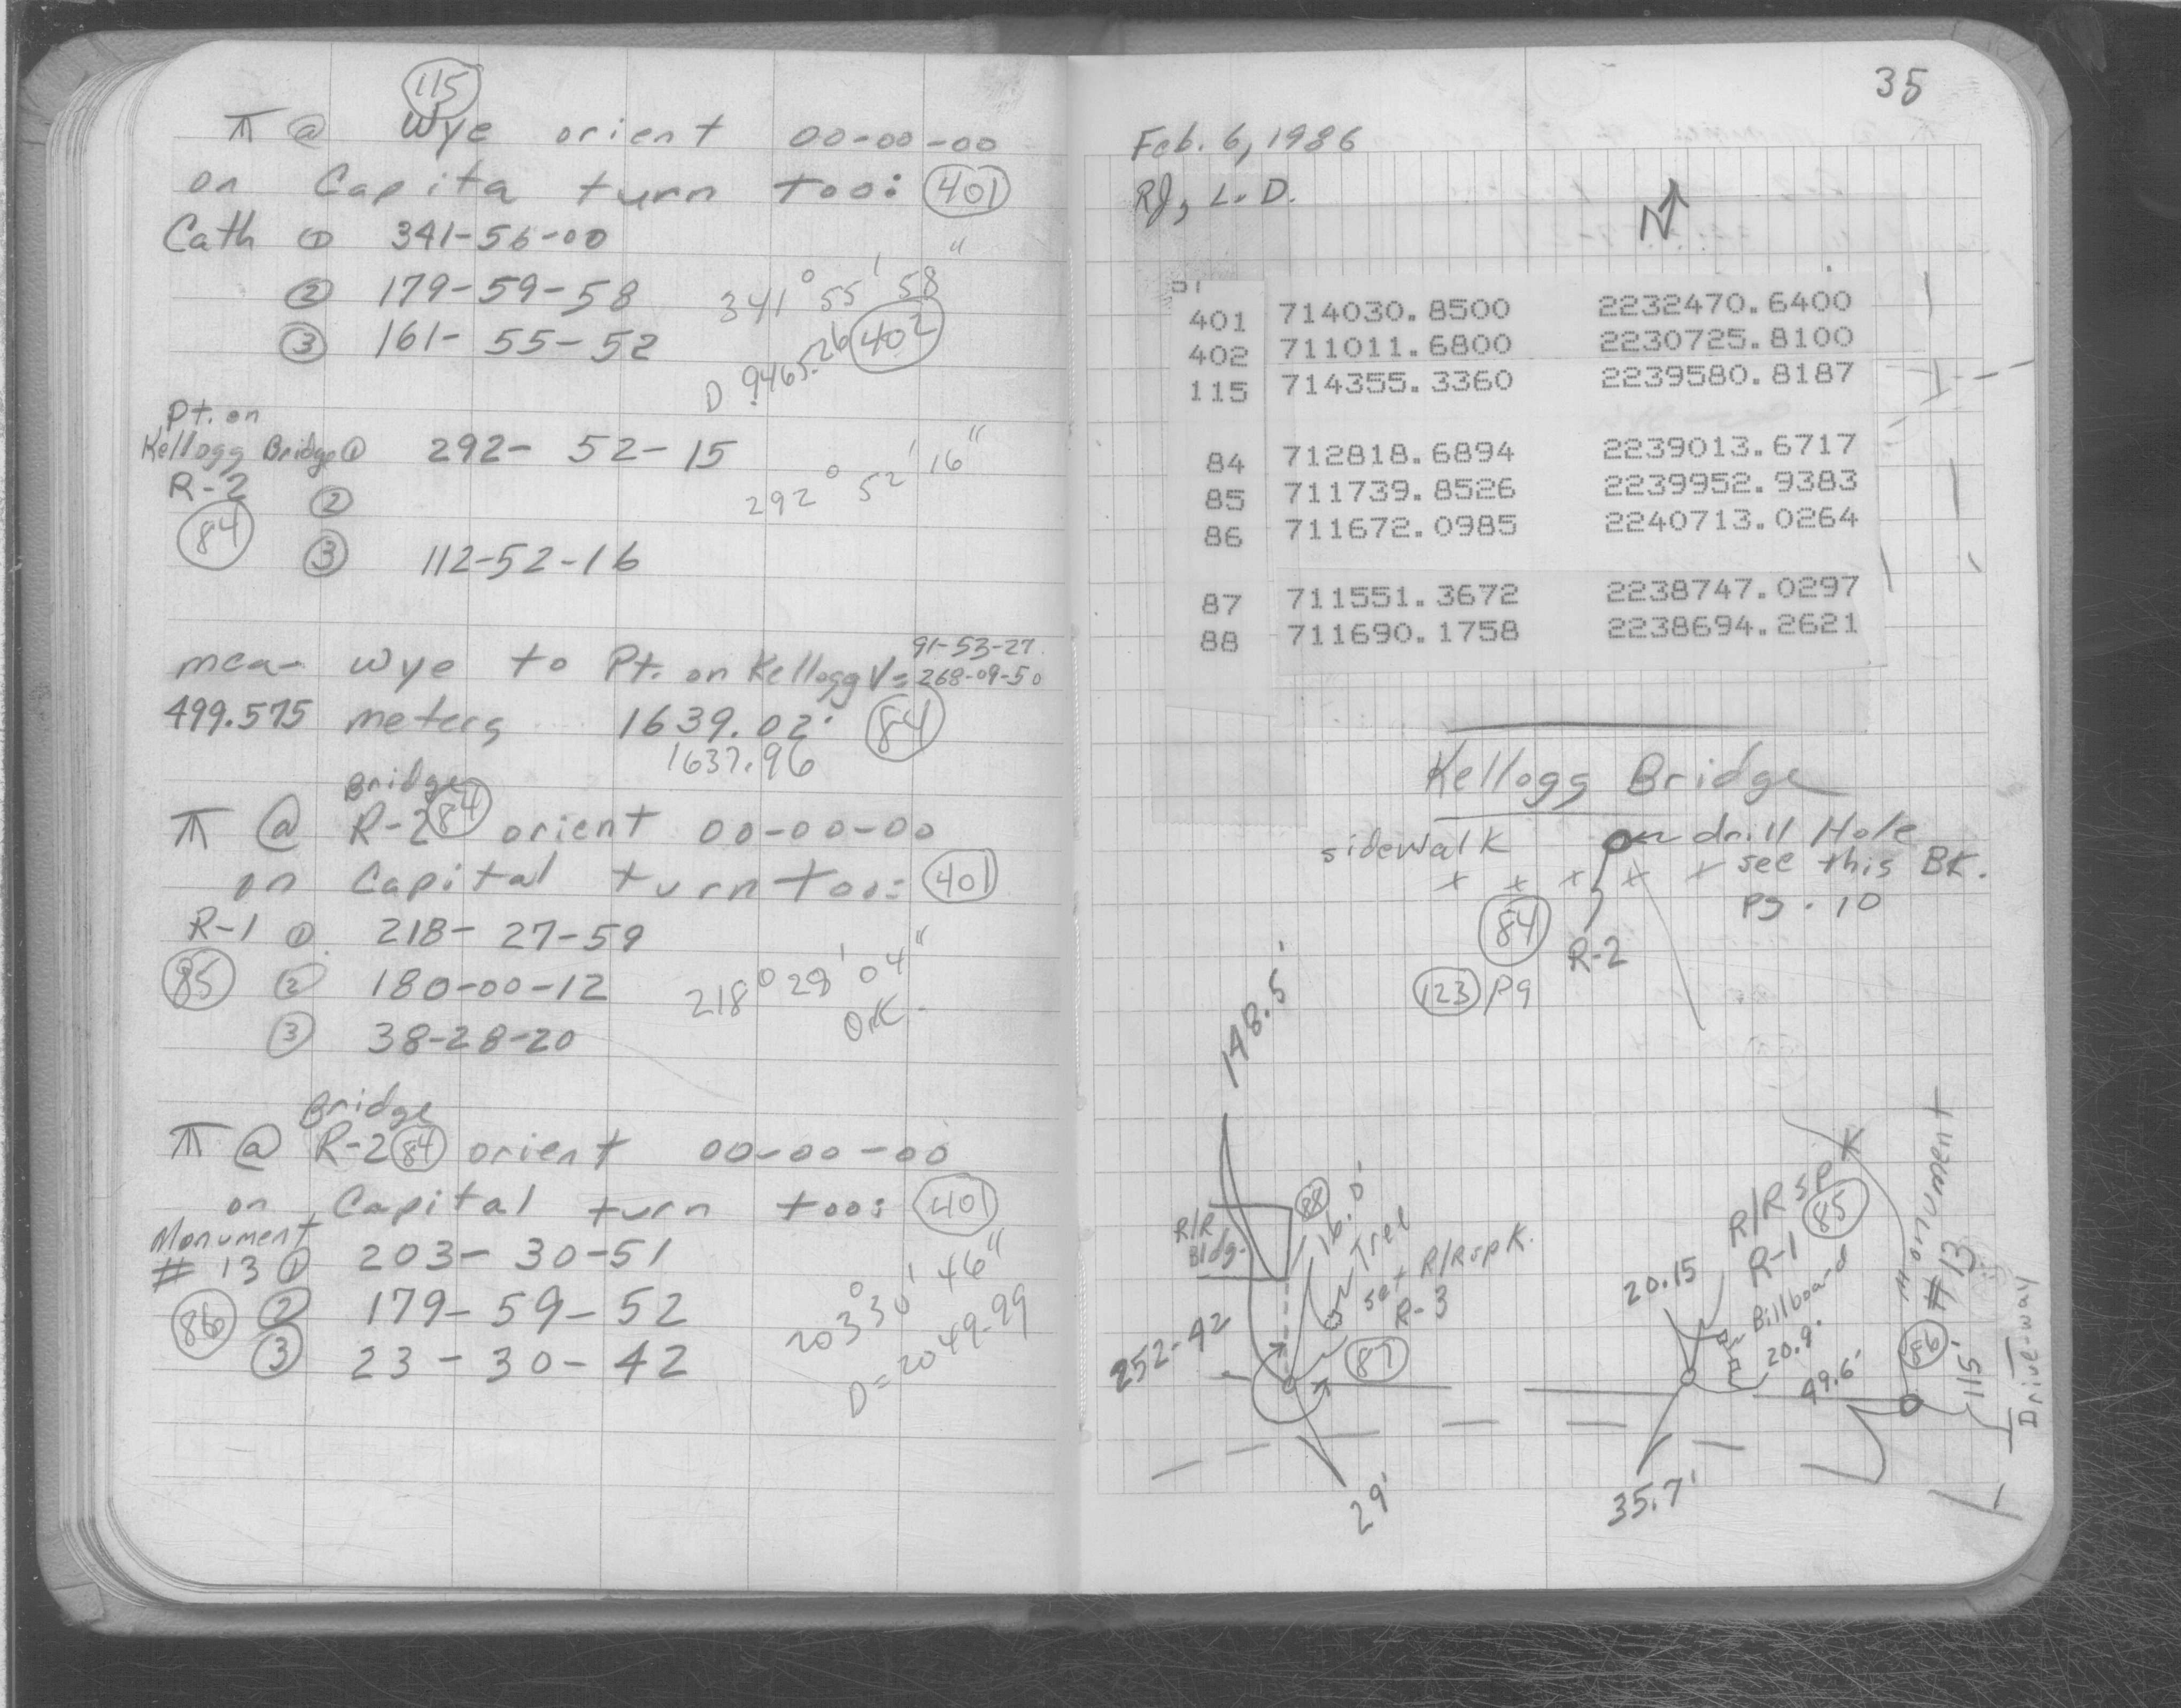 115
⊼ @ Wye orient 00-00-00
on Capita turn too: 401
Cath ① 341-56-00
② 179-59-58
341° 55' 58"
③ 161-55-52
D 9465.26 402
Pt. on
Kellogg Bridge ① 292-52-15
R-2 ②
292° 52' 16"
84
③ 112-52-16
mea- Wye to Pt. on Kellogg V= 91-53-27
268-09-50
499.575 meters 1639.02' 84
1637.96
Bridge
⊼ @ R-2 84 orient 00-00-00
on Capital turn too: 401
R-1 ① 218-27-59
85 ② 180-00-12
218° 28' 04"
OK
③ 38-28-20
Bridge
⊼ @ R-2 84 orient 00-00-00
on Capital turn too: 401
Monument
# 13 ① 203-30-51
86 ② 179-59-52
203° 30' 46"
③ 23-30-42
D=2049.29
35
Feb. 6, 1986
RJ, L. D.
N
401 714030.8500 2232470.6400
402 711011.6800 2230725.8100
115 714355.3360 2239580.8187
84 712818.6894 2239013.6717
85 711739.8526 2239952.9383
86 711672.0985 2240713.0264
87 711551.3672 2238747.0297
88 711690.1758 2238694.2621
Kellogg Bridge
sidewalk drill Hole
x x x x x see this BK.
pg. 10
84
R-2
123 P9
148.5'
R/R
Bldg.
88
16.0'
Tree
set R/R spk.
R-3
87
252-42
29'
R/R spk
R-1 85
20.15
Billboard
20.9'
35.7'
49.6'
Monument
# 13
86
115'
Drive-way